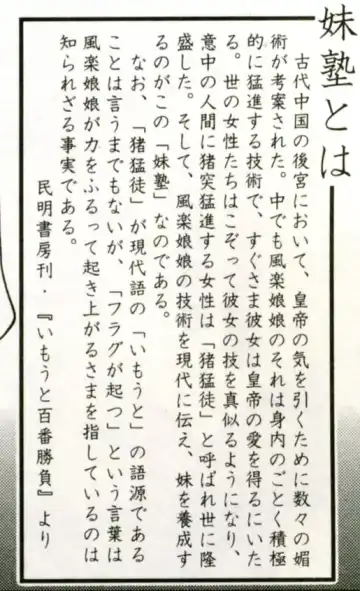 妹塾とは
古代中国の後宮において、皇帝の気を引くために数々の媚
術が考案された。中でも風楽娘娘のそれは身内のごとく積極
的に猛進する技術で、すぐさま彼女は皇帝の愛を得るにいた
る。世の女性たちはこぞって彼女の技を真似るようになり、
意中の人間に猪突猛進する女性は「猪猛徒」と呼ばれ世に隆
盛した。そして、風楽娘娘の技術を現代に伝え、妹を養成す
るのがこの「妹塾」なのである。
なお、「猪猛徒」が現代語の「いもうと」の語源である
ことは言うまでもないが、「フラグが起つ」という言葉は
風楽娘娘が力をふるって起き上がるさまを指しているのは
知られざる事実である。
民明書房刊・『いもうと百番勝負』より